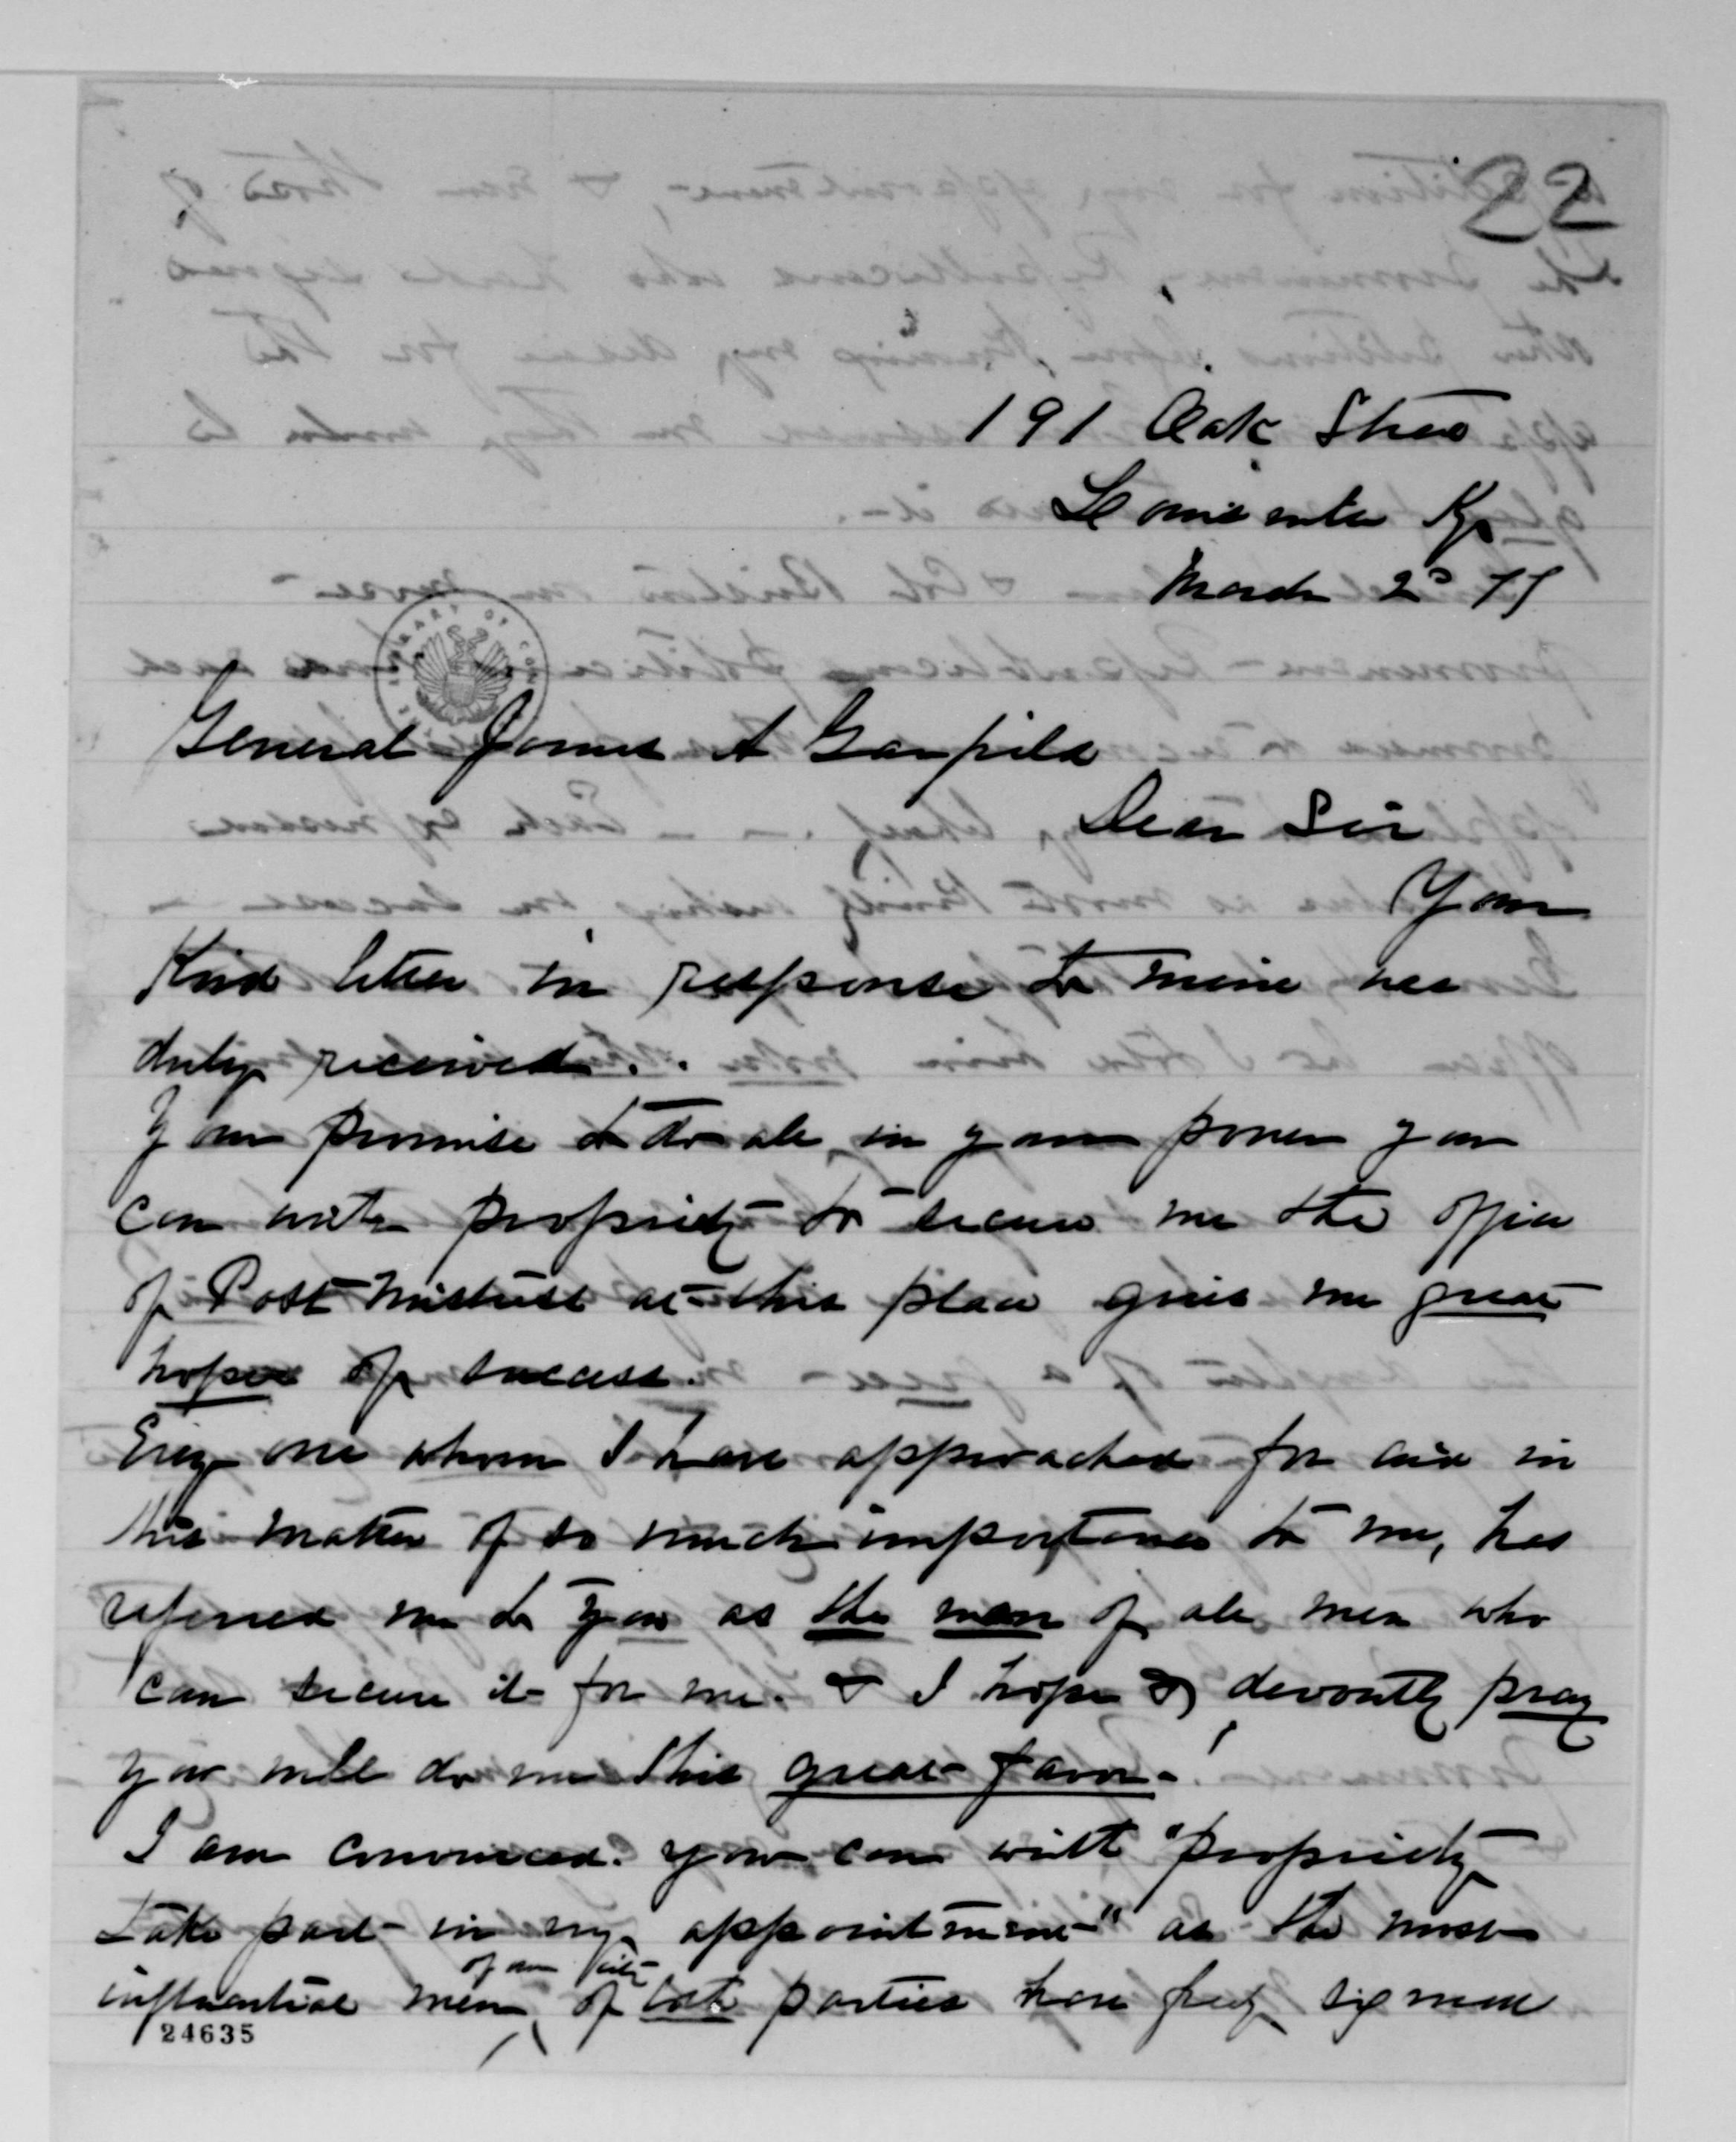 22
191 Oak Street
Louisville Ky
March 2d 77
General James A Garfield
Dear Sir
Your
Kind letter in response to mine was
duly received..
Your promise to do all in your power you
can with propriety to secure me the office
of Post Mistress at this place gives me great
hopes of success.
Every one whom I have approached for aid in
this matter of so much importance to me, has
referred me to you as the man of all men who
can secure it for me. & I hope & devoutly pray
you will do me this great favor-!
I am convinced. you can with "propriety
take part in my appointment" as the most
of our city
influential men of both parties have freely signed
24635